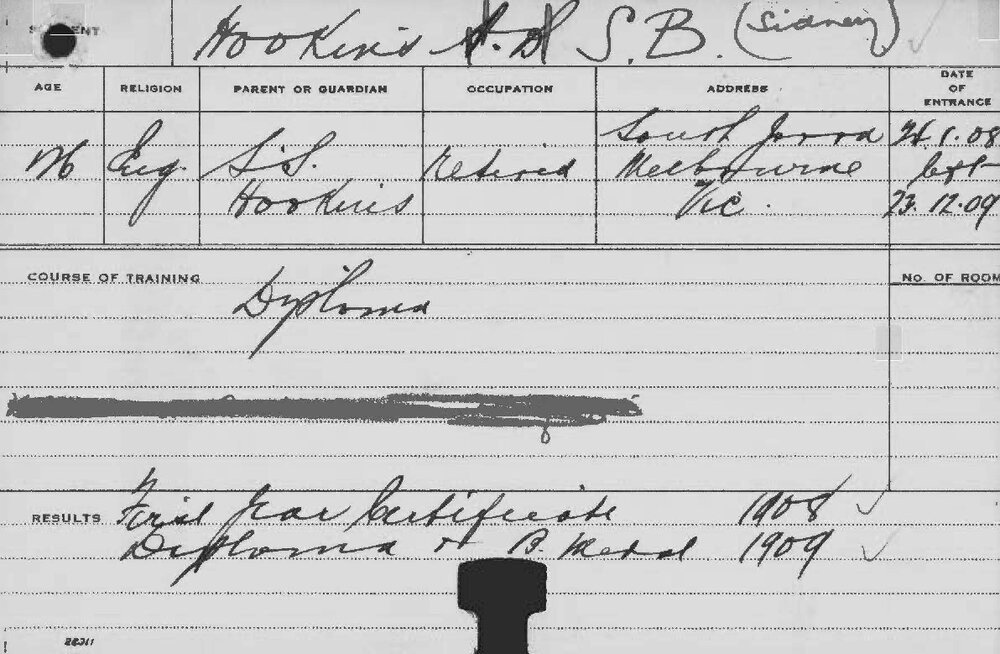 Hookins S.B. (Sidney)
AGE RELIGION PARENT OR GUARDIAN OCCUPATION ADDRESS DATE OF ENTRANCE
South Yarra
Eng. S.S. Retired Melbourne left
Hookins Vic. 23.12.09
COURSE OF TRAINING No. OF ROOM
Diploma
RESULTS First Year Certificate 1908
Diploma & B. Medal 1909